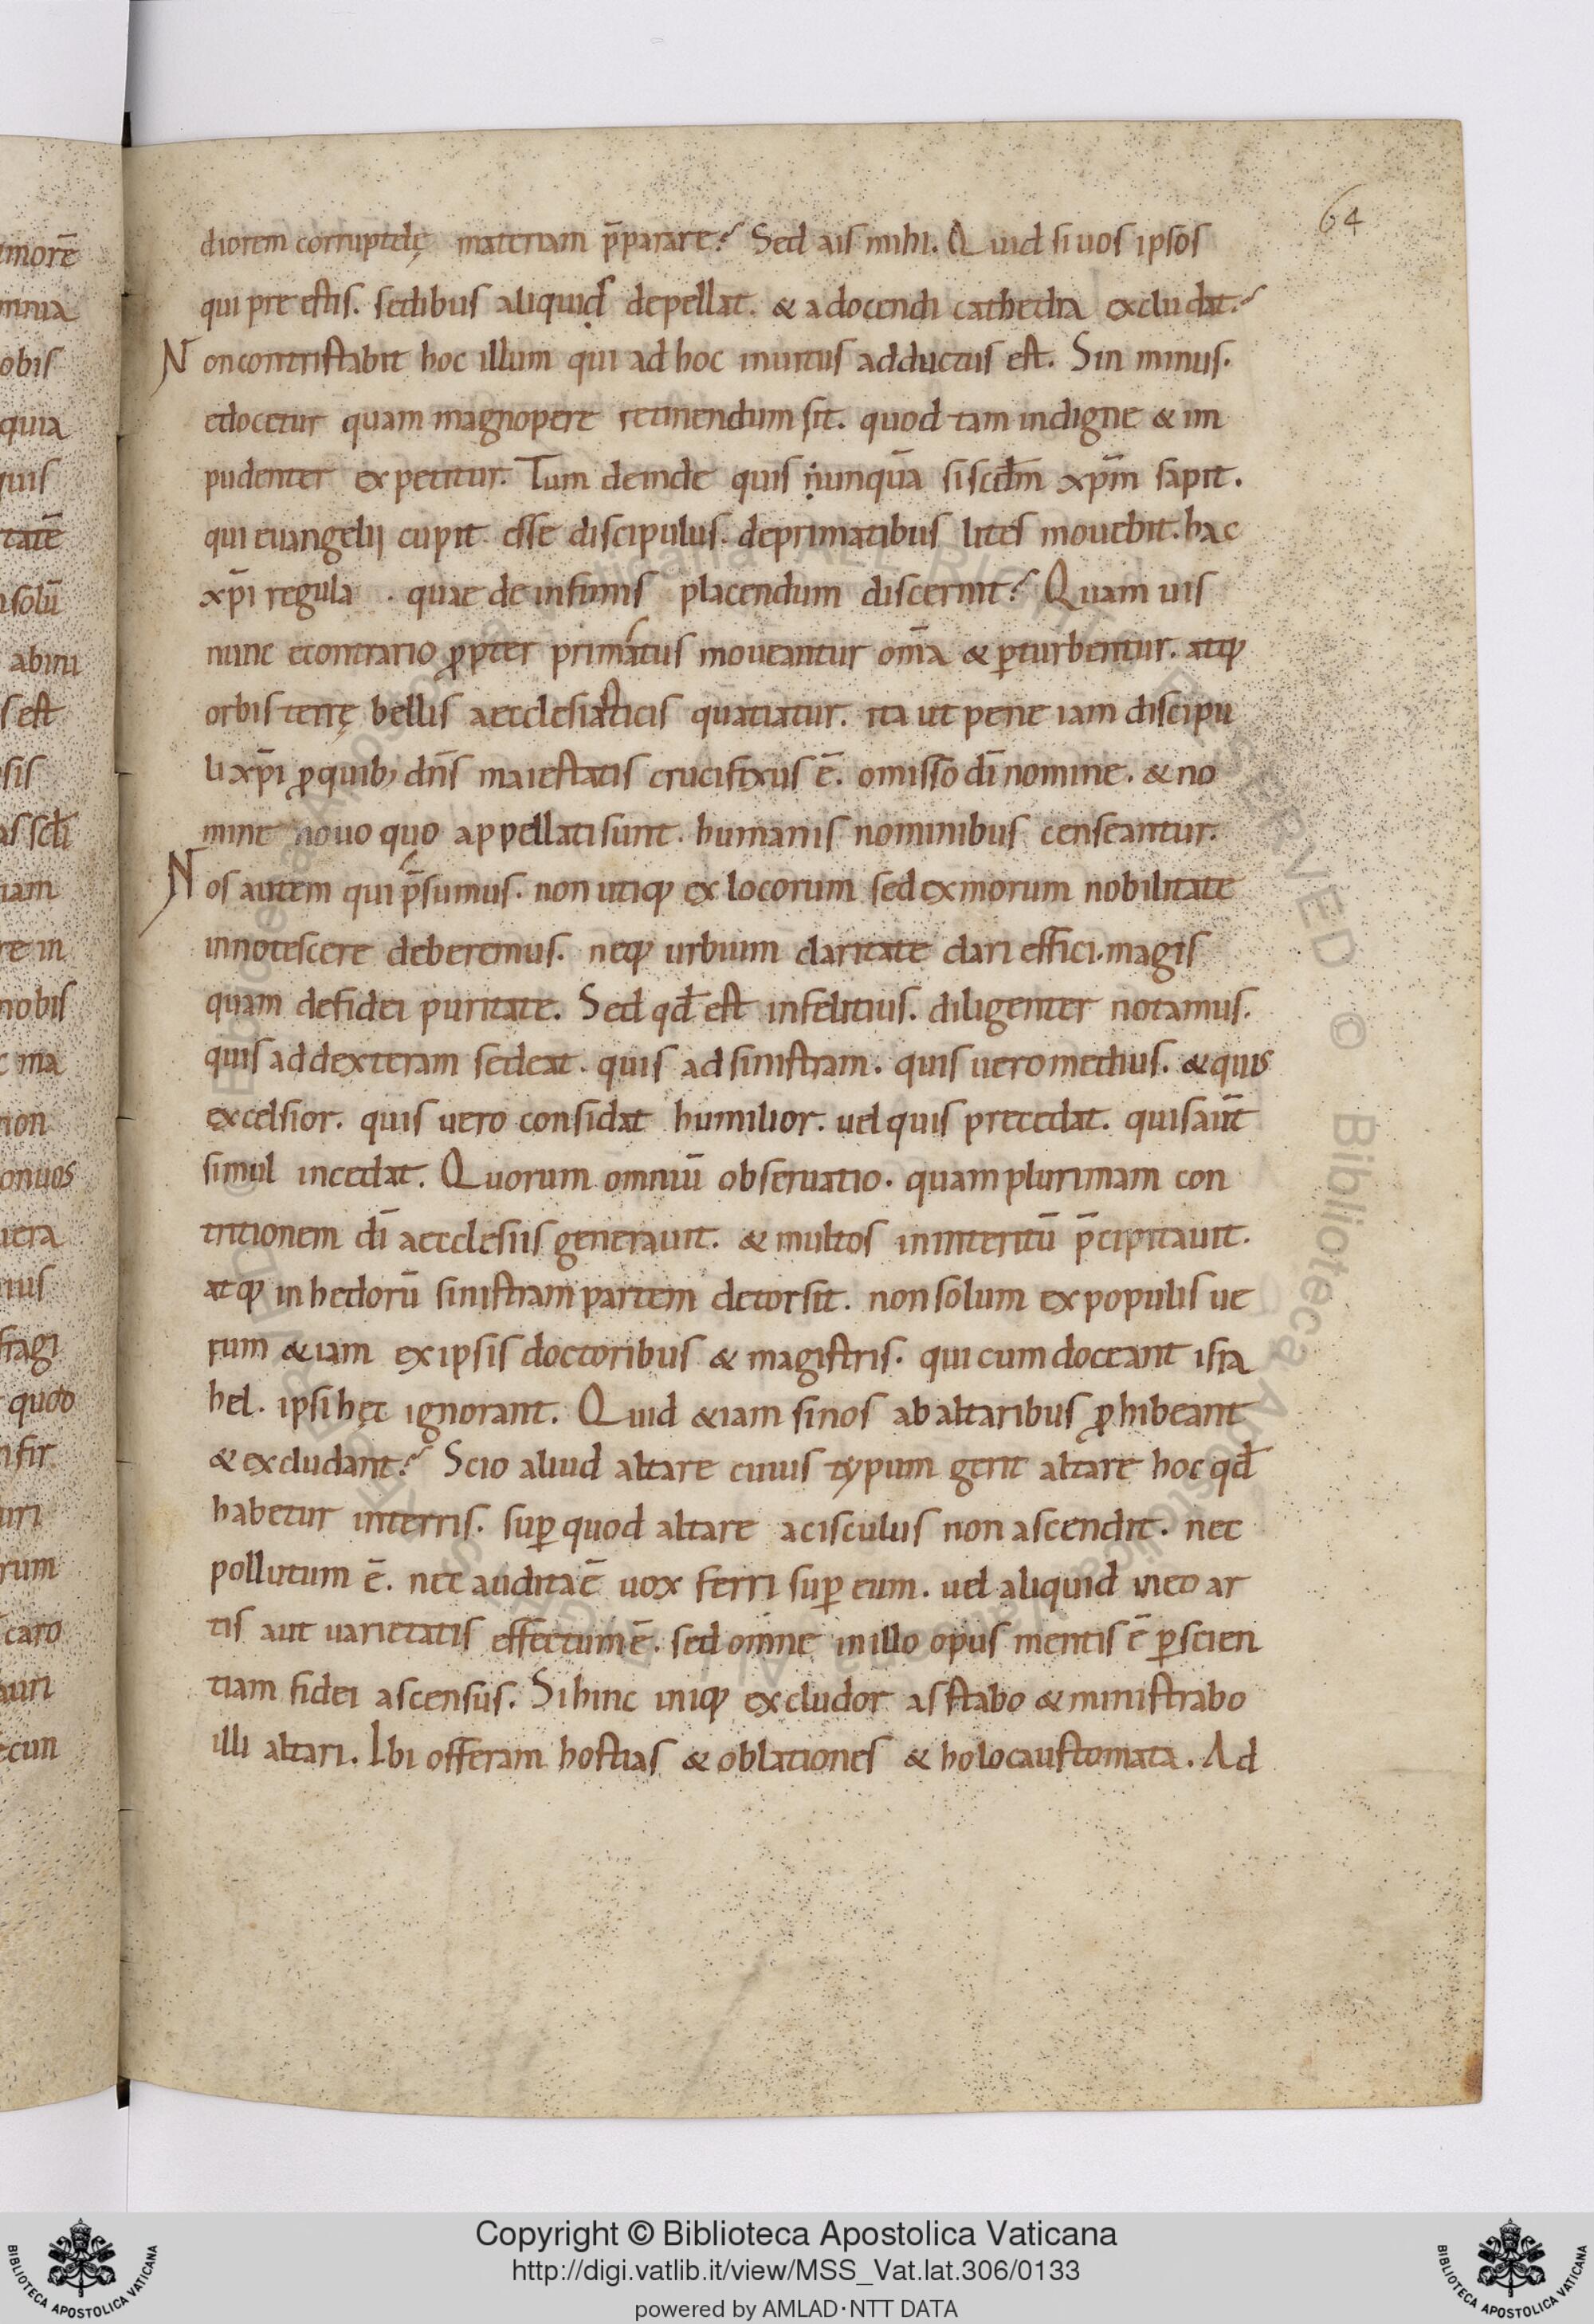 64
diorem corruptelę materiam p̄parare? Sed ais mihi. Quid si uos ipsos
qui pre estis. sedibus aliquis depellat. & a docendi cathedra excludat?
Non contristabit hoc illum qui ad hoc inuitus adductus est. Sin minus.
edocetur quam magnopere retinendum sit. quod tam indigne & im
pudenter expetitur. Tum deinde quis nunquā si scdm̄ xp̄m sapit.
qui euangelij cupit esse discipulus. de primatibus lites mouebit. hac
xp̄i regula . quae de infimis placendum discernit? Quam uis
nunc econtrario ꝓpter primatus moueantur om̄a & ꝑturbentur. atq;
orbis terrę bellis aecclesiasticis quatiatur. ita ut pene iam discipu
li xp̄i ꝓ quib; dn̄s maiestatis crucifixus ē. omisso dī nomine. & no
mine nouo quo appellati sunt. humanis nominibus censeantur.
Nos autem qui p̄sumus. non utiq; ex locorum sed ex morum nobilitate
innotescere deberemus. neq; urbium claritate clari effici. magis
quam de fidei puritate. Sed qđ est infelitius. diligenter notamus.
quis ad dexteram sedeat. quis ad sinistram. quis uero medius. & quis
excelsior. quis uero considat humilior. uel quis precedat. quis aūt
simul incedat. Quorum omniū obseruatio. quam plurimam con
tritionem dī aecclesiis generauit. & multos in interitū p̄cipitauit.
atq; in hedorū sinistram partem detorsit. non solum ex populis ue
rum &iam ex ipsis doctoribus & magistris. qui cum doceant isra
hel. ipsi hęc ignorant. Quid &iam si nos ab altaribus ꝓhibeant
& excludant? Scio aliud altare cuius typum gerit altare hoc qđ
habetur in terris. suꝑ quod altare acisculus non ascendit. nec
pollutum ē. nec audita ē uox ferri suꝑ eum. uel aliquid in eo ar
tis aut uarietatis effectum ē. sed omne in illo opus mentis ē ꝑ scien
tiam fidei ascensus. Si hinc iniq; excludor asstabo & ministrabo
illi altari. Ibi offeram hostias & oblationes & holocaustomata. Ad
Copyright © Biblioteca Apostolica Vaticana
http://digi.vatlib.it/view/MSS_Vat.lat.306/0133
powered by AMLAD·NTT DATA